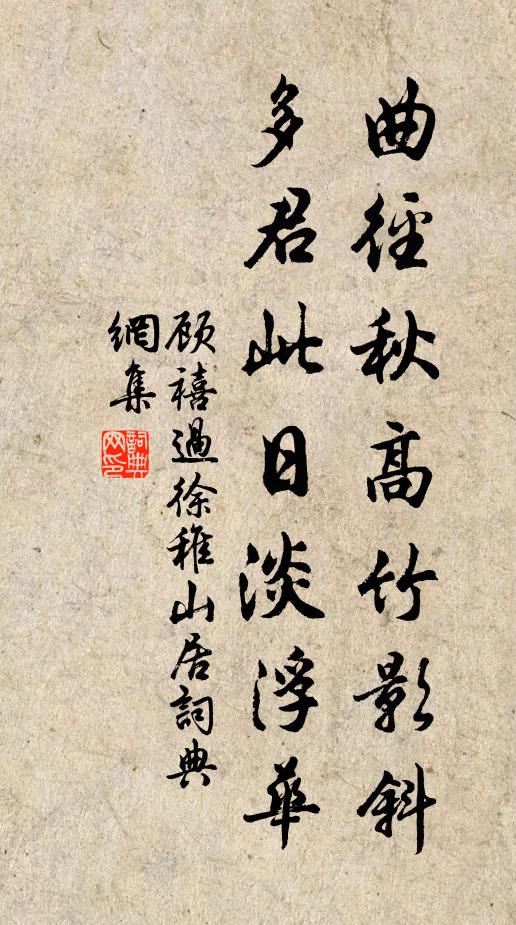 曲徑秋高竹影斜
多君此日淡浮華
顾禧過徐稚山居詞典
網集
詞典
网印